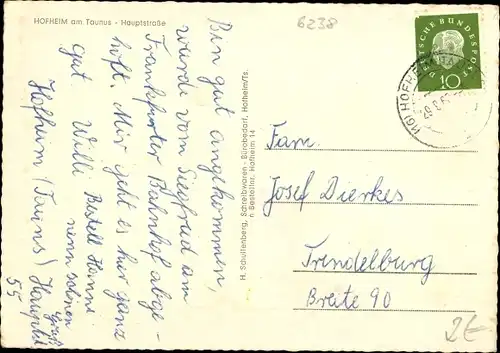 HOFHEIM am Taunus - Hauptstraße
6238
Bin gut angekommen,
wurde vom Siegfried am
Frankfurter Bahnhof abge-
holt. Mir geht es hier ganz
gut. Willi Bestell Hanne
nenn schönen
Gruß
Hofheim (Taunus) Hauptst
55
H. Schulfenberg, Schreibwaren - Bürobedarf, Hofheim/Ts.
n Bestellnr. Hofheim 14
DEUTSCHE BUNDESPOST
10
(16) HOFHEIM (TAUNUS)
Fam.
Josef Dierkes
Trendelburg
Breite 90
2€